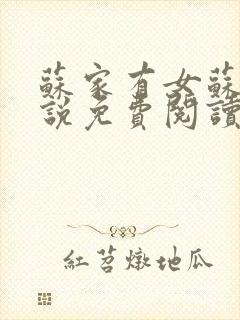 蘇家有女蘇
說免費閱讀
紅苕燉地瓜